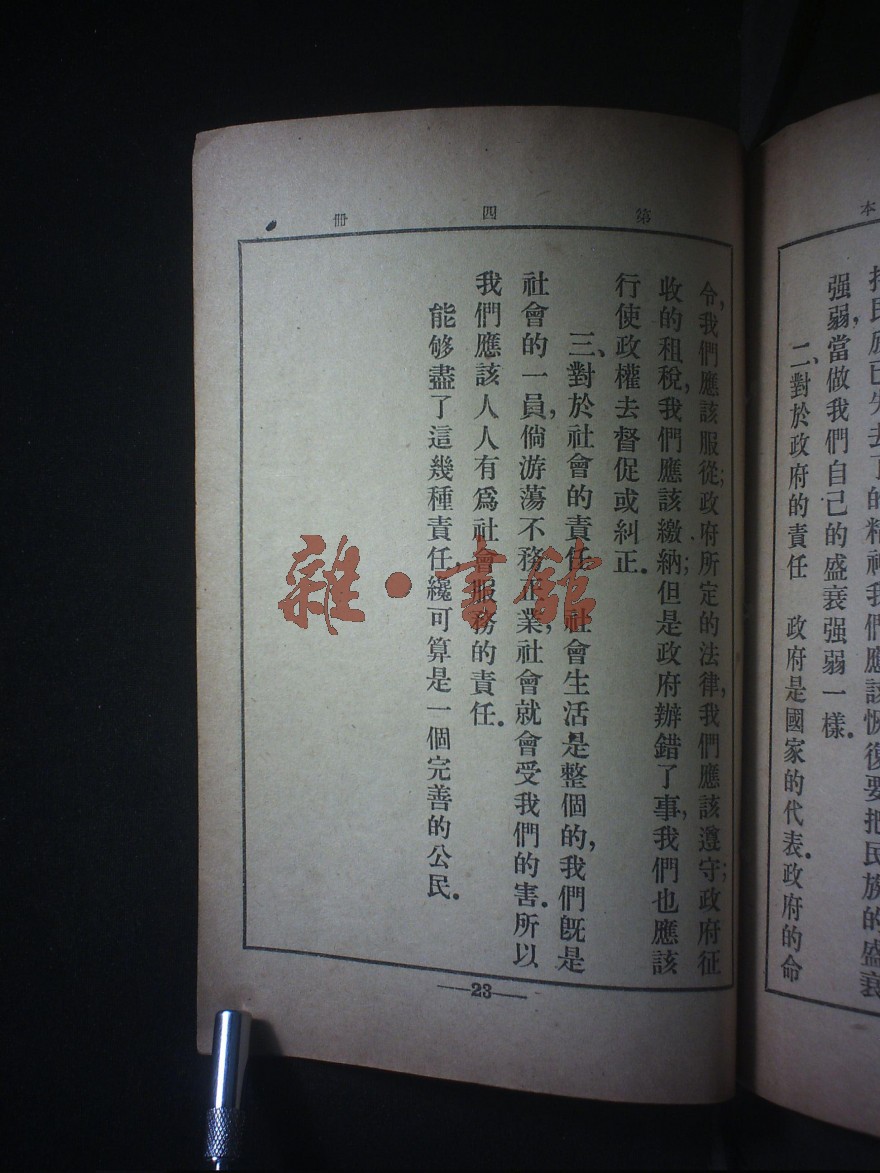 本
持民族已失去了的精神我們應該恢復要把民族的盛衰
强弱，當做我們自己的盛衰强弱一樣。
二、對於政府的責任　政府是國家的代表。政府的命
第四册
令，我們應該服從；政府所定的法律，我們應該遵守；政府征
收的租稅，我們應該繳納；但是政府辦錯了事，我們也應該
行使政權去督促或糾正。
三、對於社會的責任　社會生活是整個的，我們旣是
社會的一員，倘游蕩不務正業，社會就會受我們的害。所以
我們應該人人有爲社會服務的責任。
能够盡了這幾種責任，纔可算是一個完善的公民。
23
雜·書館